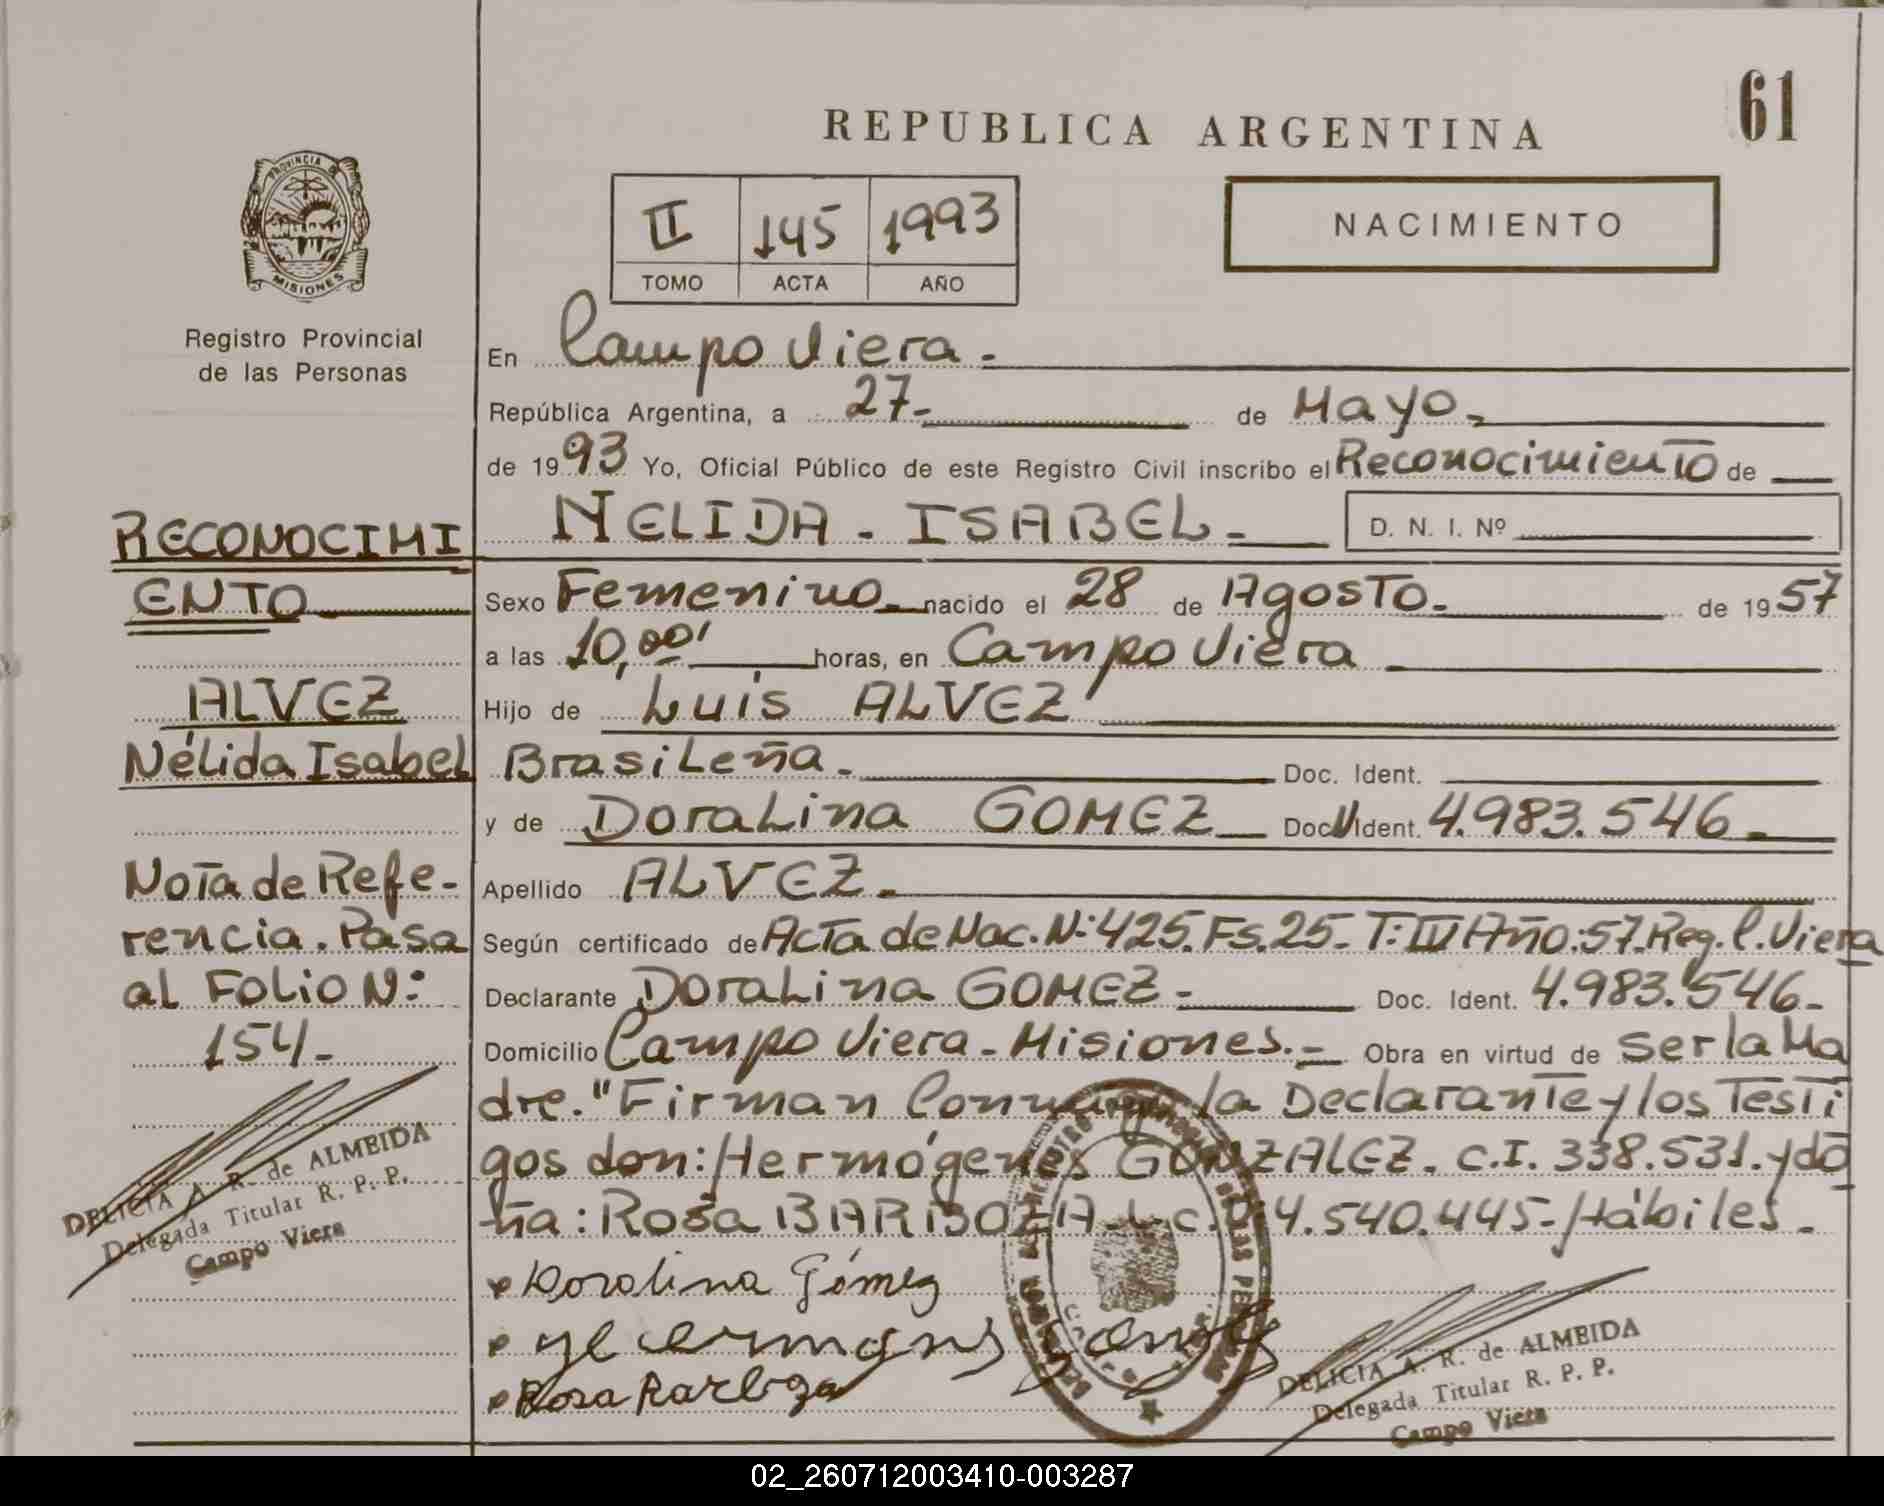 61
REPUBLICA ARGENTINA
PROVINCIA DE
MISIONES
Registro Provincial
de las Personas
II 145 1993
TOMO ACTA AÑO
NACIMIENTO
En Campo Viera.-
República Argentina, a 27- de Mayo.-
de 1993 Yo, Oficial Público de este Registro Civil inscribo el Reconocimiento de
NELIDA - ISABEL - D. N. I. Nº
Sexo Femenino.- nacido el 28 de Agosto.- de 1957
a las 10,00' horas, en Campo Viera
Hijo de Luis ALVEZ
Brasileña.- Doc. Ident.
y de Doralina GOMEZ Doc. Ident. 4.983.546.-
Apellido ALVEZ.-
Según certificado de Acta de Nac. N: 425. Fs. 25- T: III Año: 57. Reg. C. Viera
Declarante Doralina GOMEZ- Doc. Ident. 4.983.546.-
Domicilio Campo Viera - Misiones.- Obra en virtud de ser la Ma
dre. "Firman Conmigo la Declarante y los Testi
gos don: Hermógenes GONZALEZ. C.I. 338.531. y do
ña: Rosa BARBOZA- L.C. 4.540.445- Hábiles.-
Doralina Gómez
Rosa Barboza
DELICIA A. R. de ALMEIDA
Delegada Titular R. P. P.
Campo Viera
RECONOCIMI
ENTO
ALVEZ
Nélida Isabel
Nota de Refe-
rencia. Pasa
al Folio N:
154.-
DELICIA A. R. de ALMEIDA
Delegada Titular R. P. P.
Campo Viera
02_260712003410-003287